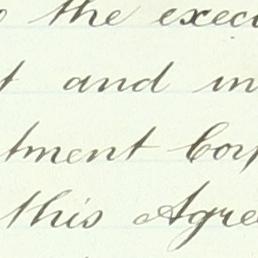 to the execu
t and in
tment Corp
this Agree